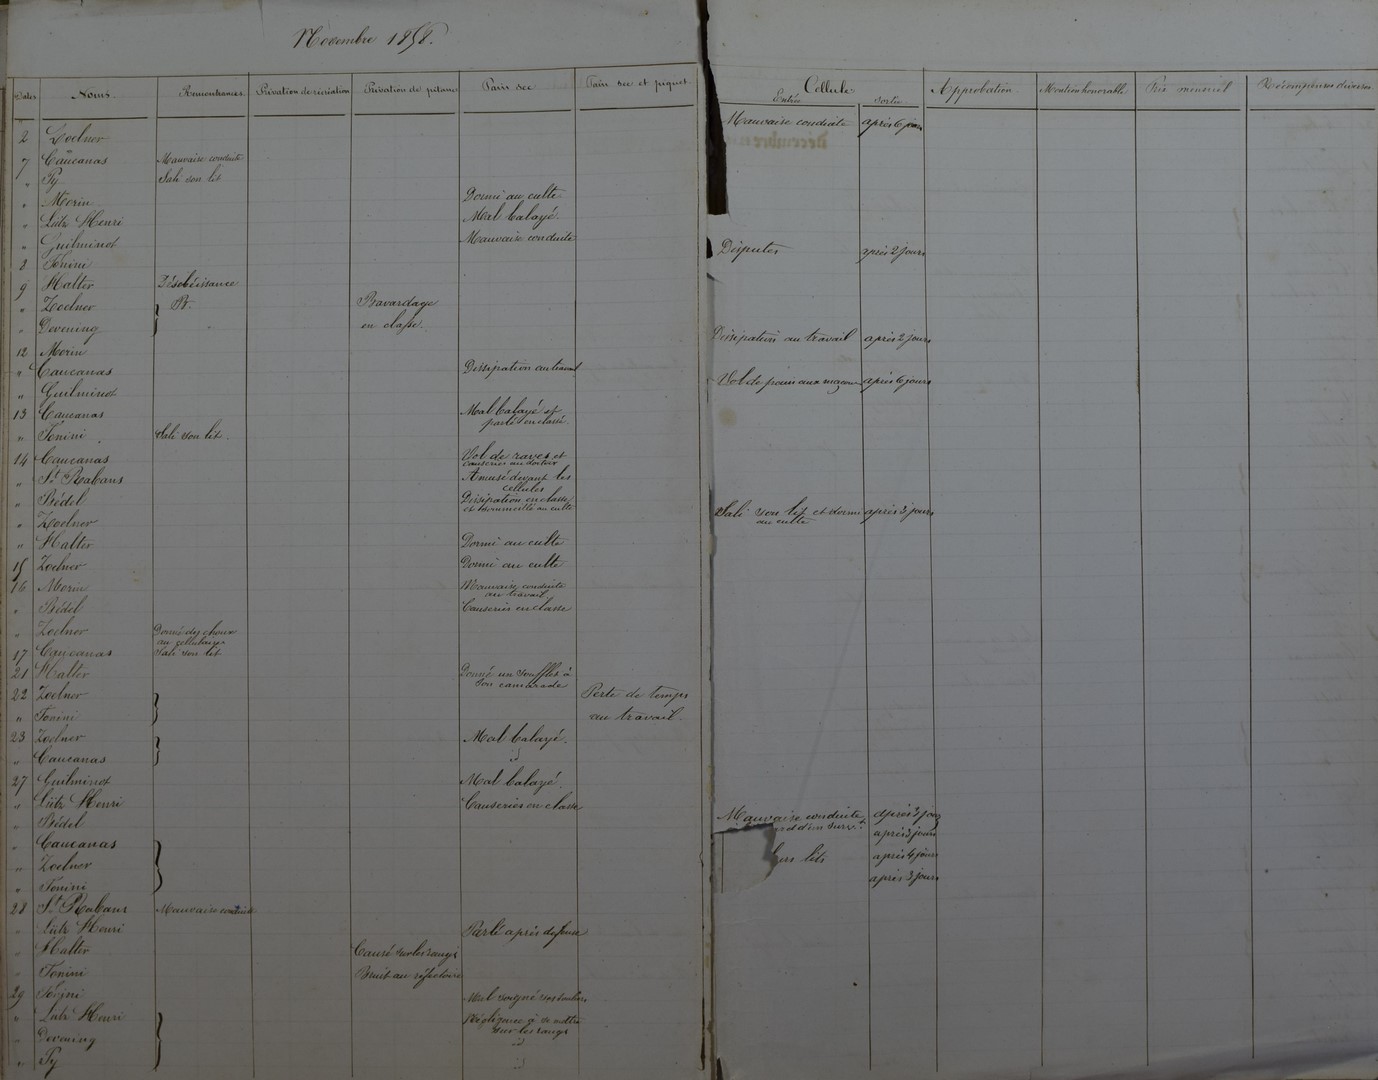 Novembre 1858.
Dates Noms. Remontrances Privation de récréation Privation de pitance Pain sec Pain sec et piquet Cellule Approbation. Mention honorable Prix mensuel Récompenses diverses
Entrée Sortie
2 Zoelner Mauvaise conduite après 6 jours
7 Caucanas Mauvaise conduite
" Py Sali son lit
" Morin Dormi au culte
" Lutz Henri Mal balayé
" Guilminot Mauvaise conduite
8 Tonini Disputes après 2 jours
9 Halter Désobéissance
" Zoelner Bavardage
" Devening en classe.
12 Morin Dissipation au travail après 2 jours
" Caucanas Dissipation au travail
" Guilminot Vol de aux maçons après 6 jours
13 Caucanas Mal balayé et
parlé en classe.
" Tonini Sali son lit.
14 Caucanas Vol de raves et
causeries au dortoir
" St Rabans Amusé devant les
cellules
" Bédel Dissipation en classe
et sommeillé au culte
" Zoelner Sali son lit et dormi après 3 jours
au culte
" Halter Dormi au culte
15 Zoelner Dormi au culte
16 Morin Mauvaise conduite
au travail
" Bédel Causeries en classe
" Zoelner Donné des choux
au cellulaires
17 Caucanas Sali son lit
21 Halter Donné un soufflet à
son camarade
22 Zoelner Perte de temps
" Tonini au travail.
23 Zoelner Mal balayé.
" Caucanas id
27 Guilminot Mal balayé.
" Lutz Henri Causeries en classe
" Bédel Mauvaise conduite après 3 jours
" Caucanas après 3 jours
" Zoelner lits après 4 jours
" Tonini après 3 jours
28 St Rabans Mauvaise conduite
" Lutz Henri Parlé après défense
" Halter Causé sur les rangs
" Tonini Bruit au réfectoire
29 Tonini Mal soigné ses souliers
" Lutz Henri Négligence à se mettre
sur les rangs
" Devening id
" Py id